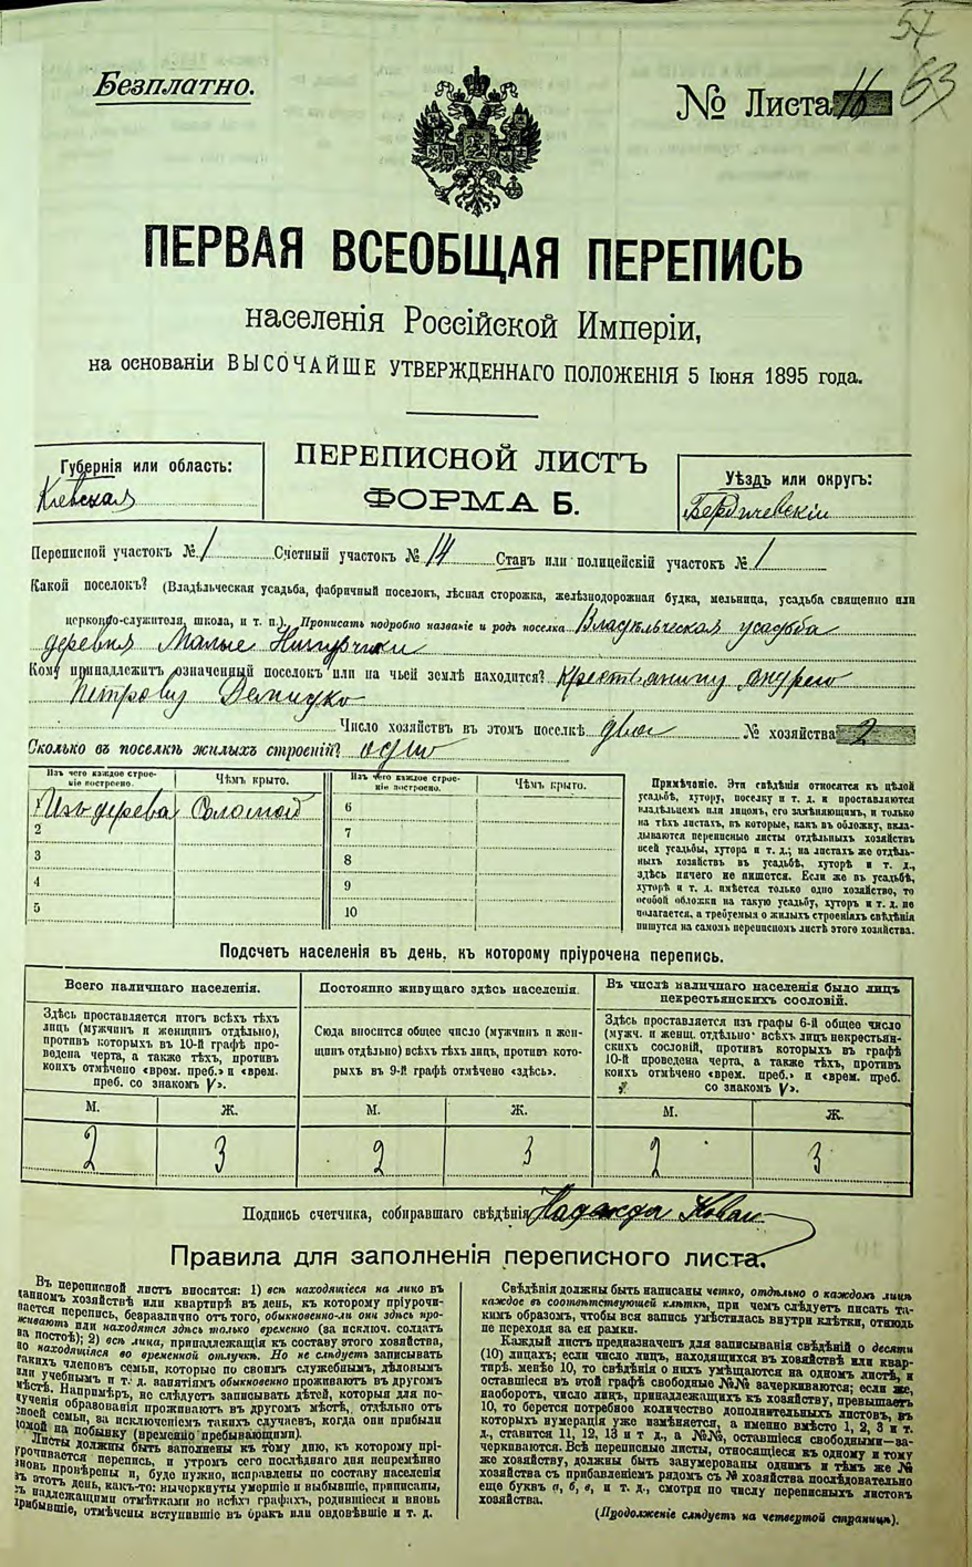 57
63
Безплатно.
№ Листа 16
ПЕРВАЯ ВСЕОБЩАЯ ПЕРЕПИСЬ
населенія Россійской Имперіи,
на основаніи ВЫСОЧАЙШЕ УТВЕРЖДЕННАГО ПОЛОЖЕНІЯ 5 Іюня 1895 года.
ПЕРЕПИСНОЙ ЛИСТЪ
ФОРМА Б.
Губернія или область:
Кіевская
Уѣздъ или округъ:
Бердичевскій
Переписной участокъ № 1 Счетный участокъ № 14 Станъ или полицейскій участокъ № 1
Какой поселокъ? (Владѣльческая усадьба, фабричный поселокъ, лѣсная сторожка, желѣзнодорожная будка, мельница, усадьба священно или
церковно-служителя, школа, и т. п.). Прописать подробно названіе и родъ поселка Владѣльческая усадьба
деревня Малые
Кому принадлежитъ означенный поселокъ или на чьей землѣ находится? Крестьянину Андрею
Петровичу
Число хозяйствъ въ этомъ поселкѣ два № хозяйства 2
Сколько въ поселкѣ жилыхъ строеній? одно
Изъ чего каждое строеніе построено. Чѣмъ крыто. Изъ чего каждое строеніе построено. Чѣмъ крыто.
1 Изъ дерева Соломой 6
2 7
3 8
4 9
5 10
Примѣчаніе. Эти свѣдѣнія относятся къ цѣлой
усадьбѣ, хутору, поселку и т. д. и проставляются
владѣльцемъ или лицомъ, его замѣняющимъ, и только
на тѣхъ листахъ, въ которые, какъ въ обложку, вкла-
дываются переписные листы отдѣльныхъ хозяйствъ
всей усадьбы, хутора и т. д.; на листахъ же отдѣль-
ныхъ хозяйствъ въ усадьбѣ, хуторѣ и т. д.,
здѣсь ничего не пишется. Если же въ усадьбѣ,
хуторѣ и т. д. имѣется только одно хозяйство, то
особой обложки на такую усадьбу, хуторъ и т. д. не
полагается, а требуемыя о жилыхъ строеніяхъ свѣдѣнія
пишутся на самомъ переписномъ листѣ этого хозяйства.
Подсчетъ населенія въ день, къ которому пріурочена перепись.
Всего наличнаго населенія.
Здѣсь проставляется итогъ всѣхъ тѣхъ
лицъ (мужчинъ и женщинъ отдѣльно),
противъ которыхъ въ 10-й графѣ про-
ведена черта, а также тѣхъ, противъ
коихъ отмѣчено «врем. преб.» и «врем.
преб. со знакомъ V».
Постоянно живущаго здѣсь населенія.
Сюда вносится общее число (мужчинъ и жен-
щинъ отдѣльно) всѣхъ тѣхъ лицъ, противъ кото-
рыхъ въ 9-й графѣ отмѣчено «здѣсь».
Въ числѣ наличнаго населенія было лицъ
некрестьянскихъ сословій.
Здѣсь проставляется изъ графы 6-й общее число
(мужч. и женщ. отдѣльно) всѣхъ лицъ некрестьян-
скихъ сословій, противъ которыхъ въ графѣ
10-й проведена черта, а также тѣхъ, противъ
коихъ отмѣчено «врем. преб.» и «врем. преб.
со знакомъ V».
М. Ж. М. Ж. М. Ж.
2 3 2 3 2 3
Подпись счетчика, собиравшаго свѣдѣнія Надежда Кован
Правила для заполненія переписного листа.
Въ переписной листъ вносятся: 1) всѣ находящіеся на лицо въ
данномъ хозяйствѣ или квартирѣ въ день, къ которому пріурочи-
вается перепись, безразлично отъ того, обыкновенно-ли они здѣсь про-
живаютъ или находятся здѣсь только временно (за исключ. солдатъ
на постоѣ); 2) всѣ лица, принадлежащія къ составу этого хозяйства,
но находящіяся во временной отлучкѣ. Но не слѣдуетъ записывать
такихъ членовъ семьи, которые по своимъ служебнымъ, дѣловымъ
или учебнымъ и т. д. занятіямъ обыкновенно проживаютъ въ другомъ
мѣстѣ. Напримѣръ, не слѣдуетъ записывать дѣтей, которыя для по-
лученія образованія проживаютъ въ другомъ мѣстѣ, отдѣльно отъ
своей семьи, за исключеніемъ такихъ случаевъ, когда они прибыли
домой на побывку (временно пребывающими).
Листы должны быть заполнены къ тому дню, къ которому прі-
урочивается перепись, и утромъ сего послѣдняго дня непремѣнно
вновь провѣрены и, буде нужно, исправлены по составу населенія
въ этотъ день, какъ-то: вычеркнуты умершіе и выбывшіе, приписаны,
съ надлежащими отмѣтками во всѣхъ графахъ, родившіеся и вновь
прибывшіе, отмѣчены вступившіе въ бракъ или овдовѣвшіе и т. д.
Свѣдѣнія должны быть написаны четко, отдѣльно о каждомъ лицѣ
каждое въ соотвѣтствующей клѣткѣ, при чемъ слѣдуетъ писать та-
кимъ образомъ, чтобы вся запись умѣстилась внутри клѣтки, отнюдь
не переходя за ея рамки.
Каждый листъ предназначенъ для записыванія свѣдѣній о десяти
(10) лицахъ; если число лицъ, находящихся въ хозяйствѣ или квар-
тирѣ, менѣе 10, то свѣдѣнія о нихъ умѣщаются на одномъ листѣ, и
оставшіеся въ этой графѣ свободные №№ зачеркиваются; если же,
наоборотъ, число лицъ, принадлежащихъ къ хозяйству, превышаетъ
10, то берется потребное количество дополнительныхъ листовъ, въ
которыхъ нумерація уже измѣняется, а именно вмѣсто 1, 2, 3 и т.
д., ставится 11, 12, 13 и т д., а №№, оставшіеся свободными—за-
черкиваются. Всѣ переписные листы, относящіеся къ одному и тому
же хозяйству, должны быть занумерованы однимъ и тѣмъ же №
хозяйства съ прибавленіемъ рядомъ съ № хозяйства послѣдовательно
еще буквъ а, б, в, и т. д., смотря по числу переписныхъ листовъ
хозяйства.
(Продолженіе слѣдуетъ на четвертой страницѣ).